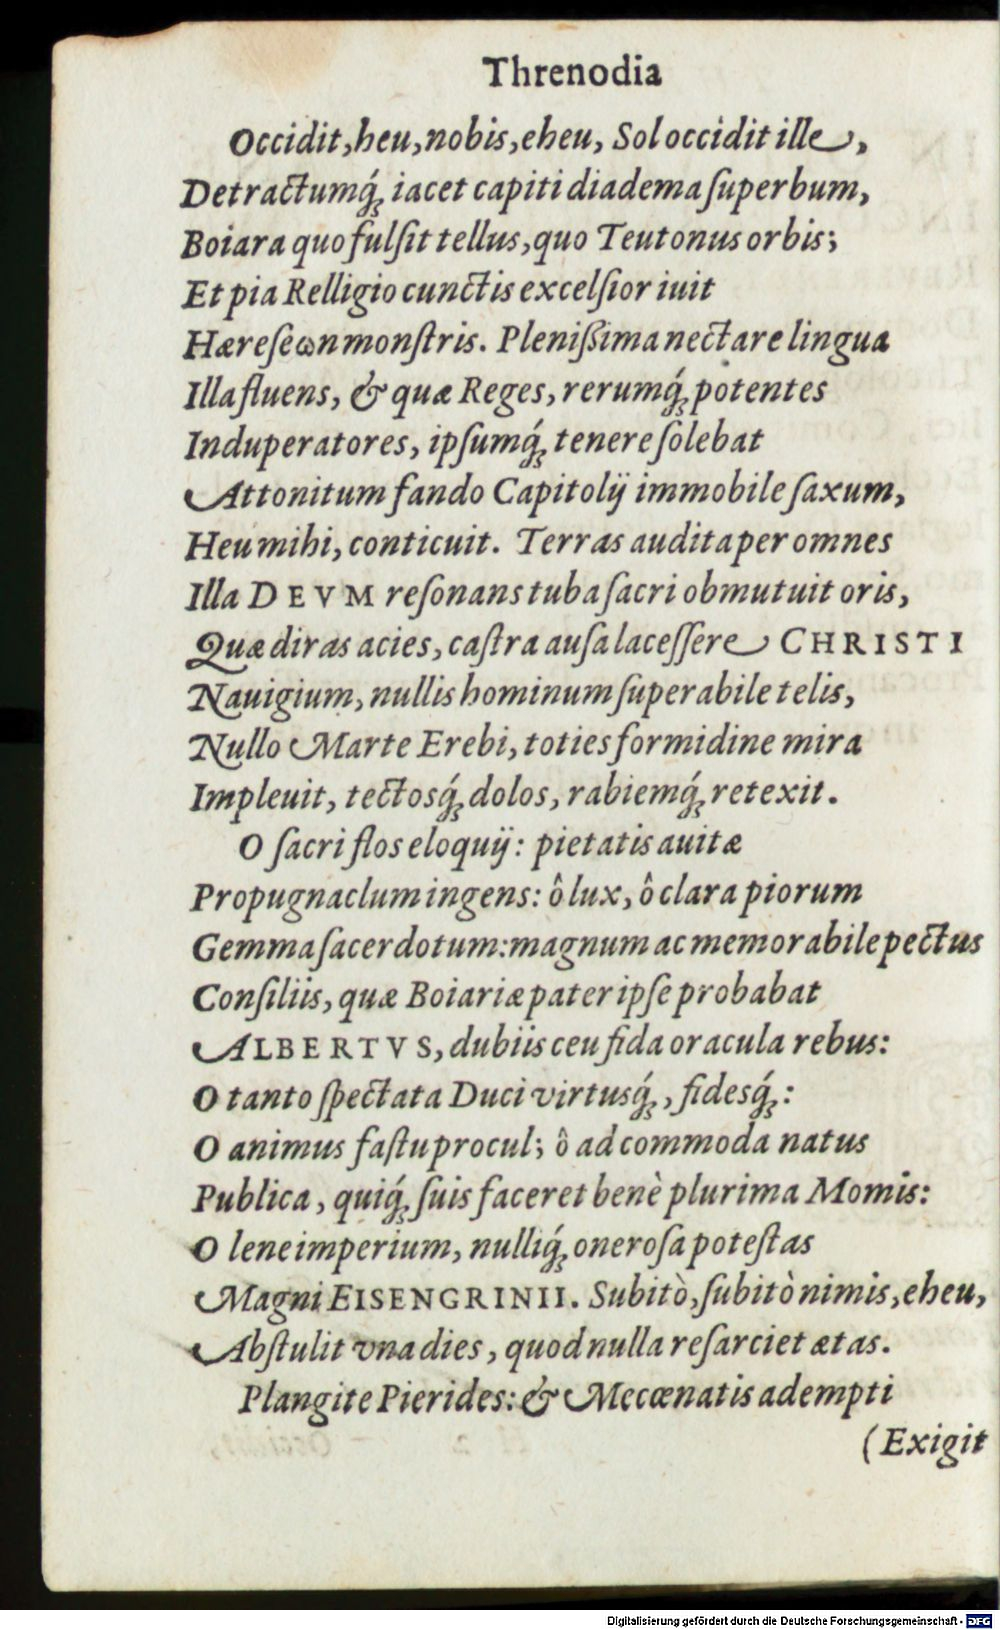 Threnodia
Occidit, heu, nobis, eheu, Sol occidit ille,
Detractumq́; iacet capiti diadema ſuperbum,
Boiara quo fulſit tellus, quo Teutonus orbis;
Et pia Relligio cunctis excelſior iuit
Hæreſeωn monſtris. Pleniſſima nectare lingua
Illa fluens, & quæ Reges, rerumq́; potentes
Induperatores, ipſumq́; tenere ſolebat
Attonitum fando Capitolij immobile ſaxum,
Heu mihi, conticuit. Terras audita per omnes
Illa DEVM reſonans tuba ſacri obmutuit oris,
Quæ diras acies, caſtra auſa laceſſere CHRISTI
Nauigium, nullis hominum ſuperabile telis,
Nullo Marte Erebi, toties formidine mira
Impleuit, tectosq́; dolos, rabiemq́; retexit.
O ſacri flos eloquij: pietatis auitæ
Propugnaclum ingens: ô lux, ô clara piorum
Gemma ſacerdotum: magnum ac memorabile pectus
Conſiliis, quæ Boiariæ pater ipſe probabat
ALBERTVS, dubiis ceu fida oracula rebus:
O tanto ſpectata Duci virtusq́;, fidesq́;:
O animus faſtu procul; ô ad commoda natus
Publica, quiq́; ſuis faceret benè plurima Momis:
O lene imperium, nulliq́; oneroſa poteſtas
Magni EISENGRINII. Subitò, ſubitò nimis, eheu,
Abſtulit vna dies, quod nulla reſarciet ætas.
Plangite Pierides: & Mecœnatis adempti
(Exigit
Digitalisierung gefördert durch die Deutsche Forschungsgemeinschaft - DFG